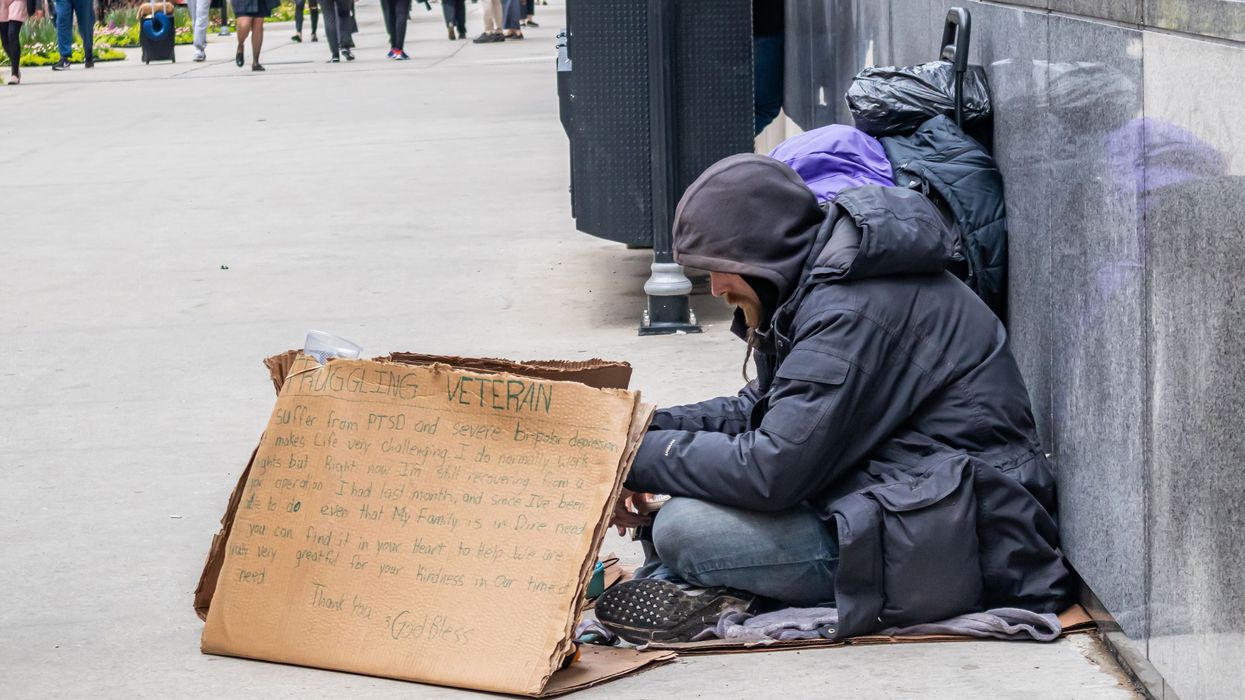 STRUGGLING VETERAN
suffer from PTSD and severe bi-polar depression
makes Life very challenging I do normally work
ights but Right now I'm still recovering from a
jor operation I had last month, and since I've been
le to do even that My Family is in Dire need
you can find it in your Heart to Help We are
very greatful for your Kindness in Our time of
need
Thank You
God Bless